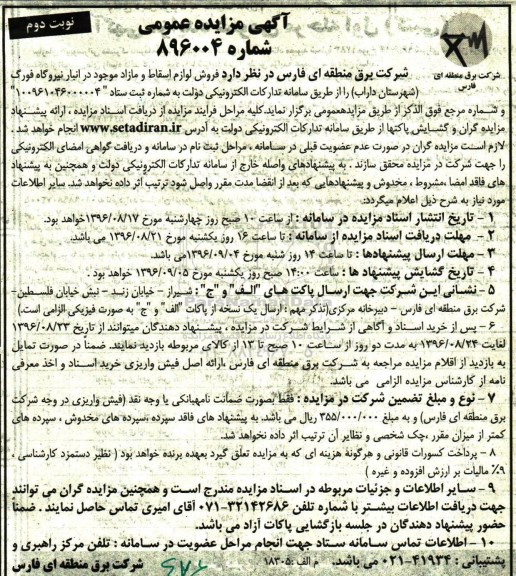 نوبت دوم
آگهی مزایده عمومی
شماره ۸۹۶۰۰۴
شرکت برق منطقه ای
فارس
شرکت برق منطقه ای فارس در نظر دارد فروش لوازم اسقاط و مازاد موجود در انبار نیروگاه فورگ
(شهرستان داراب) را از طریق سامانه تدارکات الکترونیکی دولت به شماره ثبت ستاد "۱۰۰۹۶۱۰۴۶۰۰۰۰۰۴"
و شماره مرجع فوق الذکر از طریق مزایدهعمومی برگزار نماید.کلیه مراحل فرایند مزایده از دریافت اسناد مزایده ، ارائه پیشنهاد
مزایده گران و گشایش پاکتها از طریق سامانه تدارکات الکترونیکی دولت به آدرس www.setadiran.ir انجام خواهد شد .
لازم است مزایده گران در صورت عدم عضویت قبلی در سامانه ، مراحل ثبت نام در سامانه و دریافت گواهی امضای الکترونیکی
را جهت شرکت در مزایده محقق سازند . به پیشنهادهای واصله خارج از سامانه تدارکات الکترونیکی دولت و همچنین به پیشنهاد
های فاقد امضا ،مشروط ، مخدوش و پیشنهادهایی که بعد از انقضا مدت مقرر واصل شود ترتیب اثر داده نخواهد شد. سایر اطلاعات
مورد نیاز به شرح ذیل اعلام میگردد:
۱ - تاریخ انتشار اسناد مزایده در سامانه : از ساعت ۱۰ صبح روز چهارشنبه مورخ ۱۳۹۶/۰۸/۱۷خواهد بود.
۲ - مهلت دریافت اسناد مزایده از سامانه : تا ساعت ۱۶ روز یکشنبه مورخ ۱۳۹۶/۰۸/۲۱ می باشد.
۳ - مهلت ارسال پیشنهادها : تا ساعت ۱۴ روز شنبه مورخ ۱۳۹۶/۰۹/۰۴می باشد.
۴ - تاریخ گشایش پیشنهاد ها : ساعت ۱۴:۰۰ صبح روز یکشنبه مورخ ۱۳۹۶/۰۹/۰۵ خواهد بود .
۵ - نشانی این شرکت جهت ارسال پاکت های "الف" و "ج": شیراز - خیابان زند - نبش خیابان فلسطین-
شرکت برق منطقه ای فارس - دبیرخانه مرکزی(تذکر مهم : ارسال یک نسخه از پاکات "الف" و "ج" به صورت فیزیکی الزامی است.)
۶ - پس از خرید اسناد و آگاهی از شرایط شرکت در مزایده ، پیشنهاد دهندگان میتوانند از تاریخ ۱۳۹۶/۰۸/۲۳
لغایت ۱۳۹۶/۰۸/۲۴ به مدت دو روز از ساعت ۱۰ صبح تا ۱۳ از کالای مربوطه بازدید نمایند. ضمنا در صورت تمایل
به بازدید از اقلام مزایده مراجعه به شرکت برق منطقه ای فارس ،ارائه اصل فیش واریزی خرید اسناد و اخذ معرفی
نامه از کارشناس مزایده الزامی می باشد.
۷ - نوع و مبلغ تضمین شرکت در مزایده : فقط بصورت ضمانت نامهبانکی یا وجه نقد (فیش واریزی در وجه شرکت
برق منطقه ای فارس) و به مبلغ ۳۵۵/۰۰۰/۰۰۰ ریال می باشد. به پیشنهاد های فاقد سپرده ،سپرده های مخدوش ، سپرده های
کمتر از میزان مقرر ،چک شخصی و نظایر آن ترتیب اثر داده نخواهد شد.
۸ - پرداخت کسورات قانونی و هرگونه هزینه ای که به مزایده تعلق گیرد بعهده برنده خواهد بود ( نظیر دستمزد کارشناسی ،
۹٪ مالیات بر ارزش افزوده و غیره )
۹ - سایر اطلاعات و جزئیات مربوطه در اسناد مزایده مندرج است و همچنین مزایده گران می توانند
جهت دریافت اطلاعات بیشتر با شماره تلفن ۳۲۱۴۲۶۸۶-۰۷۱ آقای امیری تماس حاصل نمایند . ضمنا
حضور پیشنهاد دهندگان در جلسه بازگشایی پاکات آزاد می باشد.
۱۰ - اطلاعات تماس سامانه ستاد جهت انجام مراحل عضویت در سامانه : تلفن مرکز راهبری و
پشتیبانی : ۴۱۹۳۴-۰۲۱ می باشد.
م الف : ۱۸۳۰۵
شرکت برق منطقه ای فارس